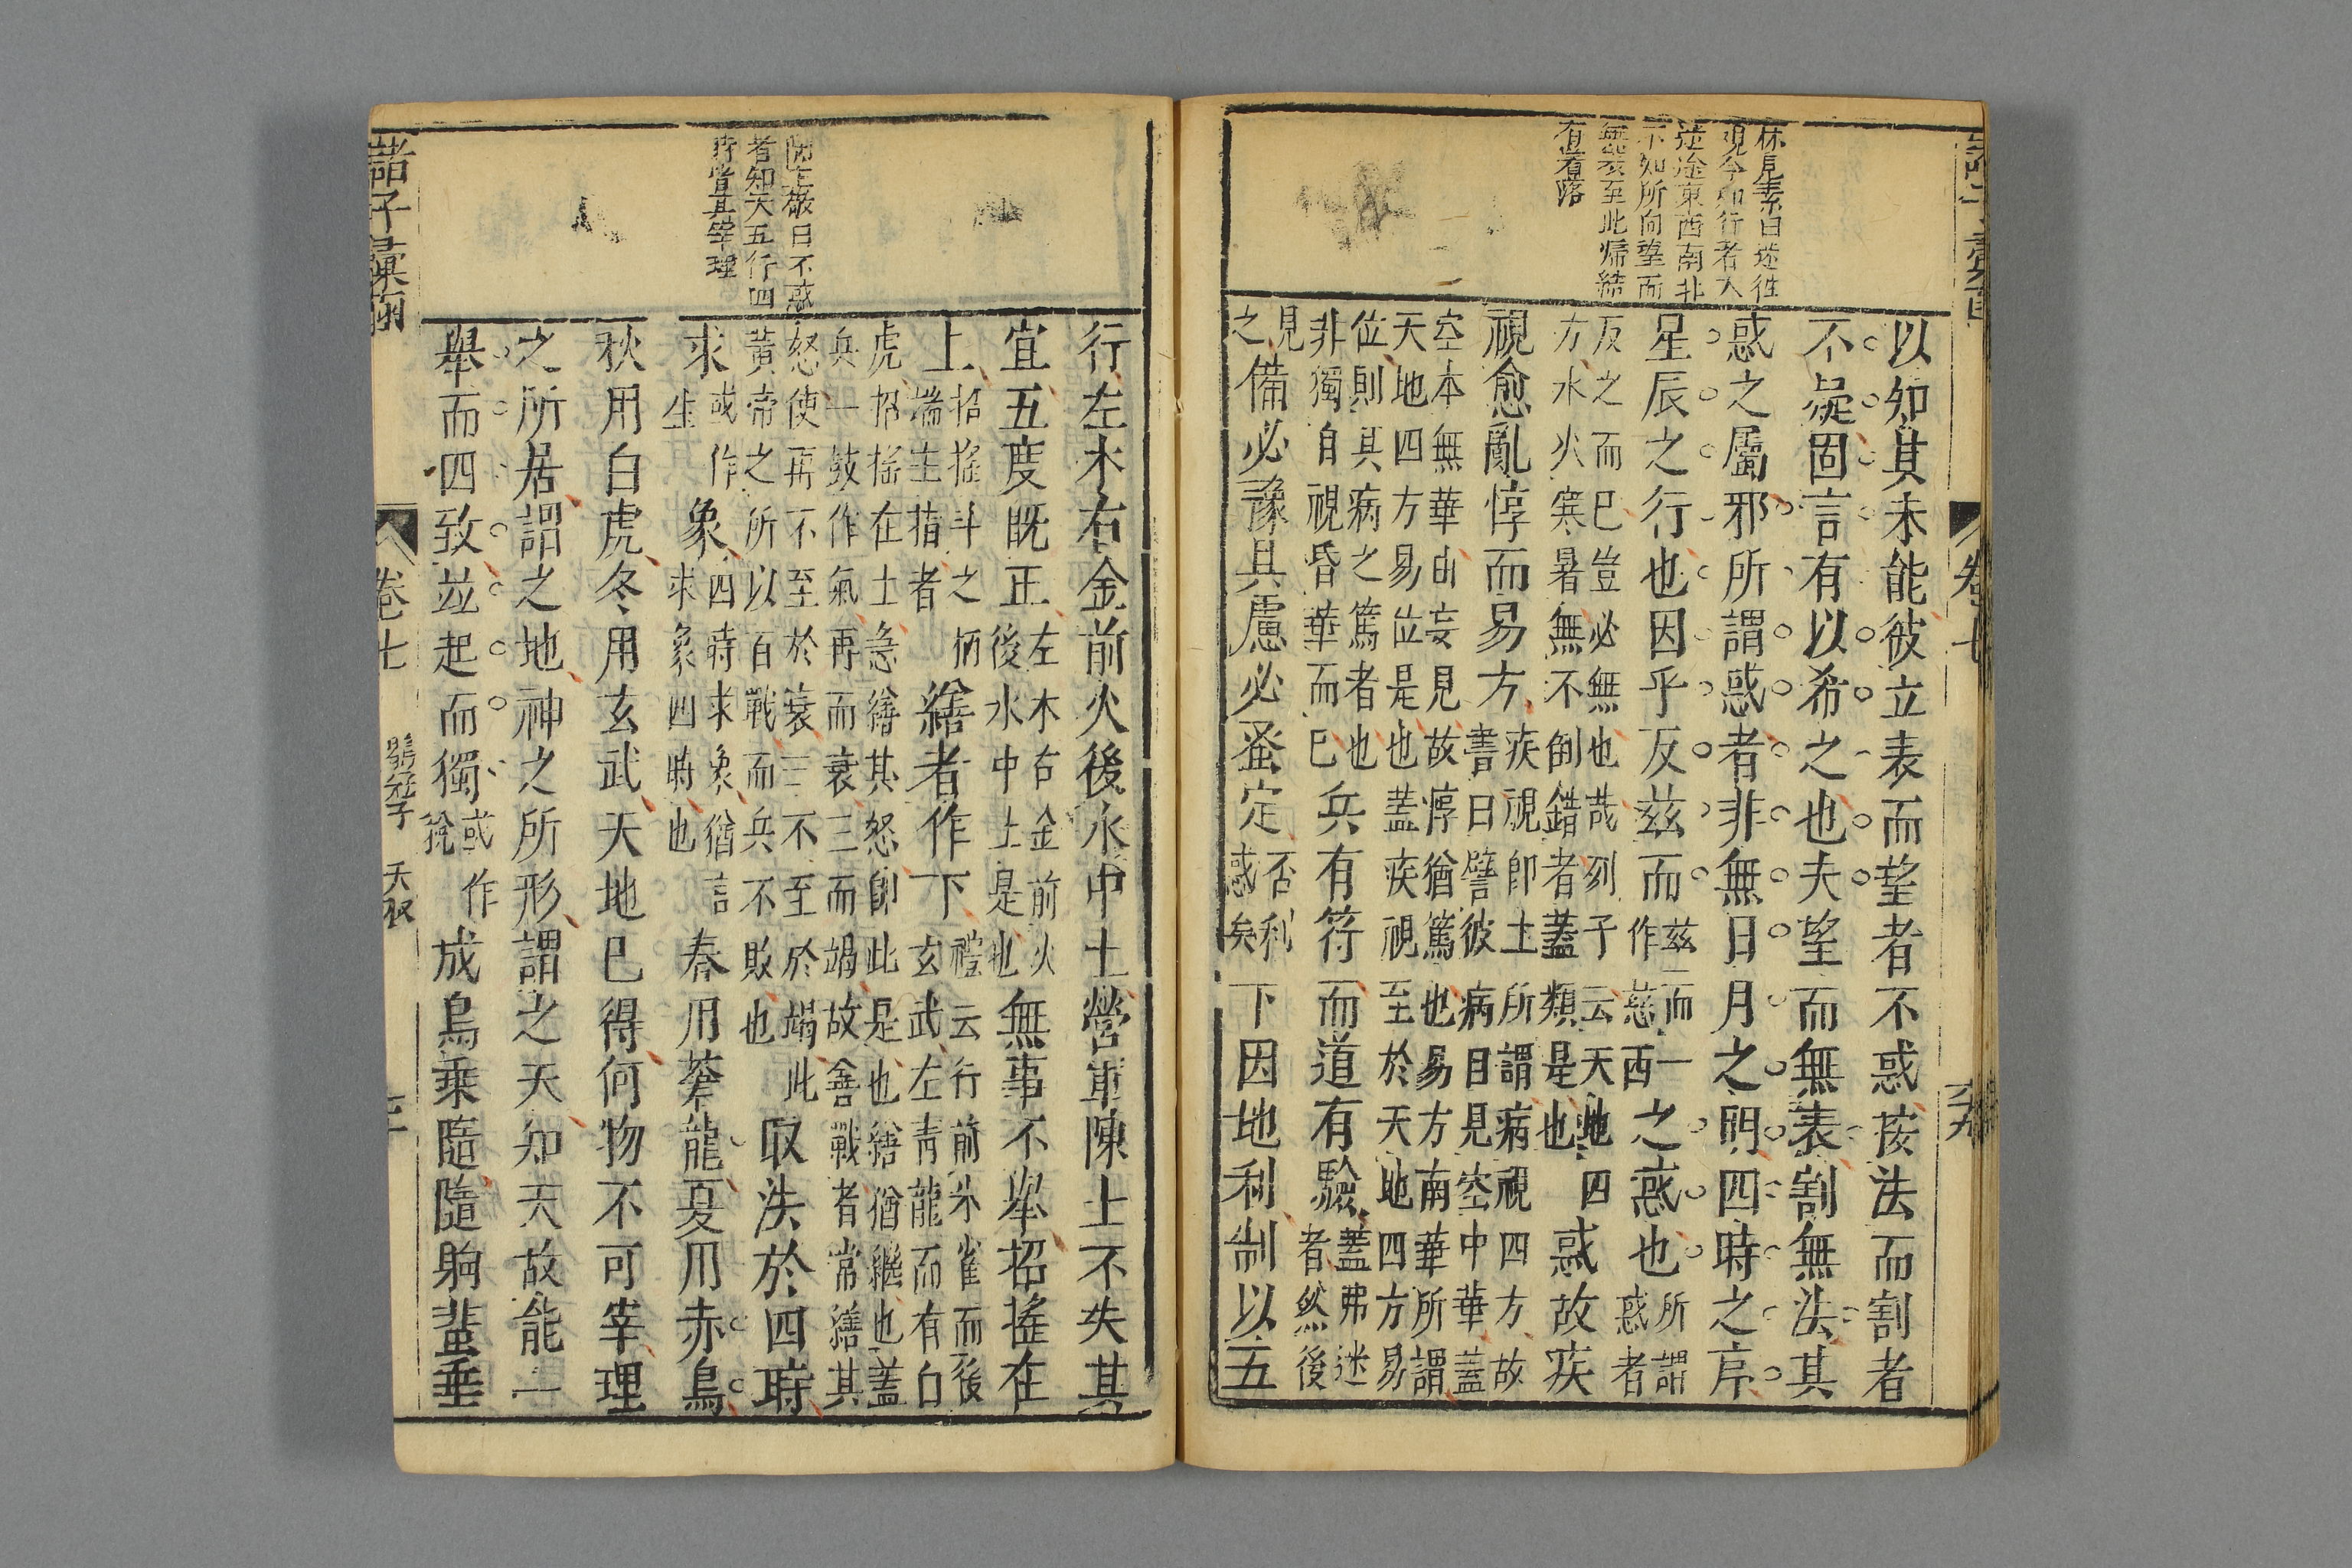 林見素曰迷往
觀今知行者大
迷途東西南北
不知所向望而
無該至此歸結
有着落
以知其未能彼立表而望者不惑按法而割者
不疑固言有以希之也夫望而無表割無法其
惑之屬邪所謂惑者非無日月之明四時之序
星辰之行也因乎反茲而茲而一作慈西之惑也所謂惑者
反之而已豈必無也哉列子云天地四方水火寒暑無不倒錯者蓋類是也惑故疾
視愈亂惇而易方疾視卽土所謂病視四方故書曰譬彼病目見空中華蓋
空本無華由妄見故惇猶篤也易方南華所謂天地四方易位是也蓋疾視至於天地四方易
位則其病之篤者也非獨自視昏華而已兵有符而道有驗蓋弗迷者然後
見之備必豫具慮必蚤定否利惑矣下因地利制以五
卷七
諸子彙函
行左木右金前火後水中土營軍陳士不失其
宜五度既正左木右金前火後水中土是也無事不舉招搖在
上招搖斗之柄端主指者繕者作下禮云行前朱雀而後玄武左青龍而有白
虎招搖在土急繕其怒卽此是也繕猶繼也蓋兵一鼓作氣再而衰三而竭故善戰者常繕其
怒使再不至於衰三不至於竭此黃帝之所以百戰而兵不敗也取法於四時
求或作生象四時求象猶言求象四時也春用蒼龍夏用赤鳥
秋用白虎冬用玄武天地已得何物不可宰理
之所居謂之地神之所形謂之天知天故能一
舉而四致並起而獨或作稅成鳥乘隨隨駒蜚垂
閔主敬曰不惑
者知天五行四
時皆其宰理
諸子彙函
卷七
鶡冠子
天權